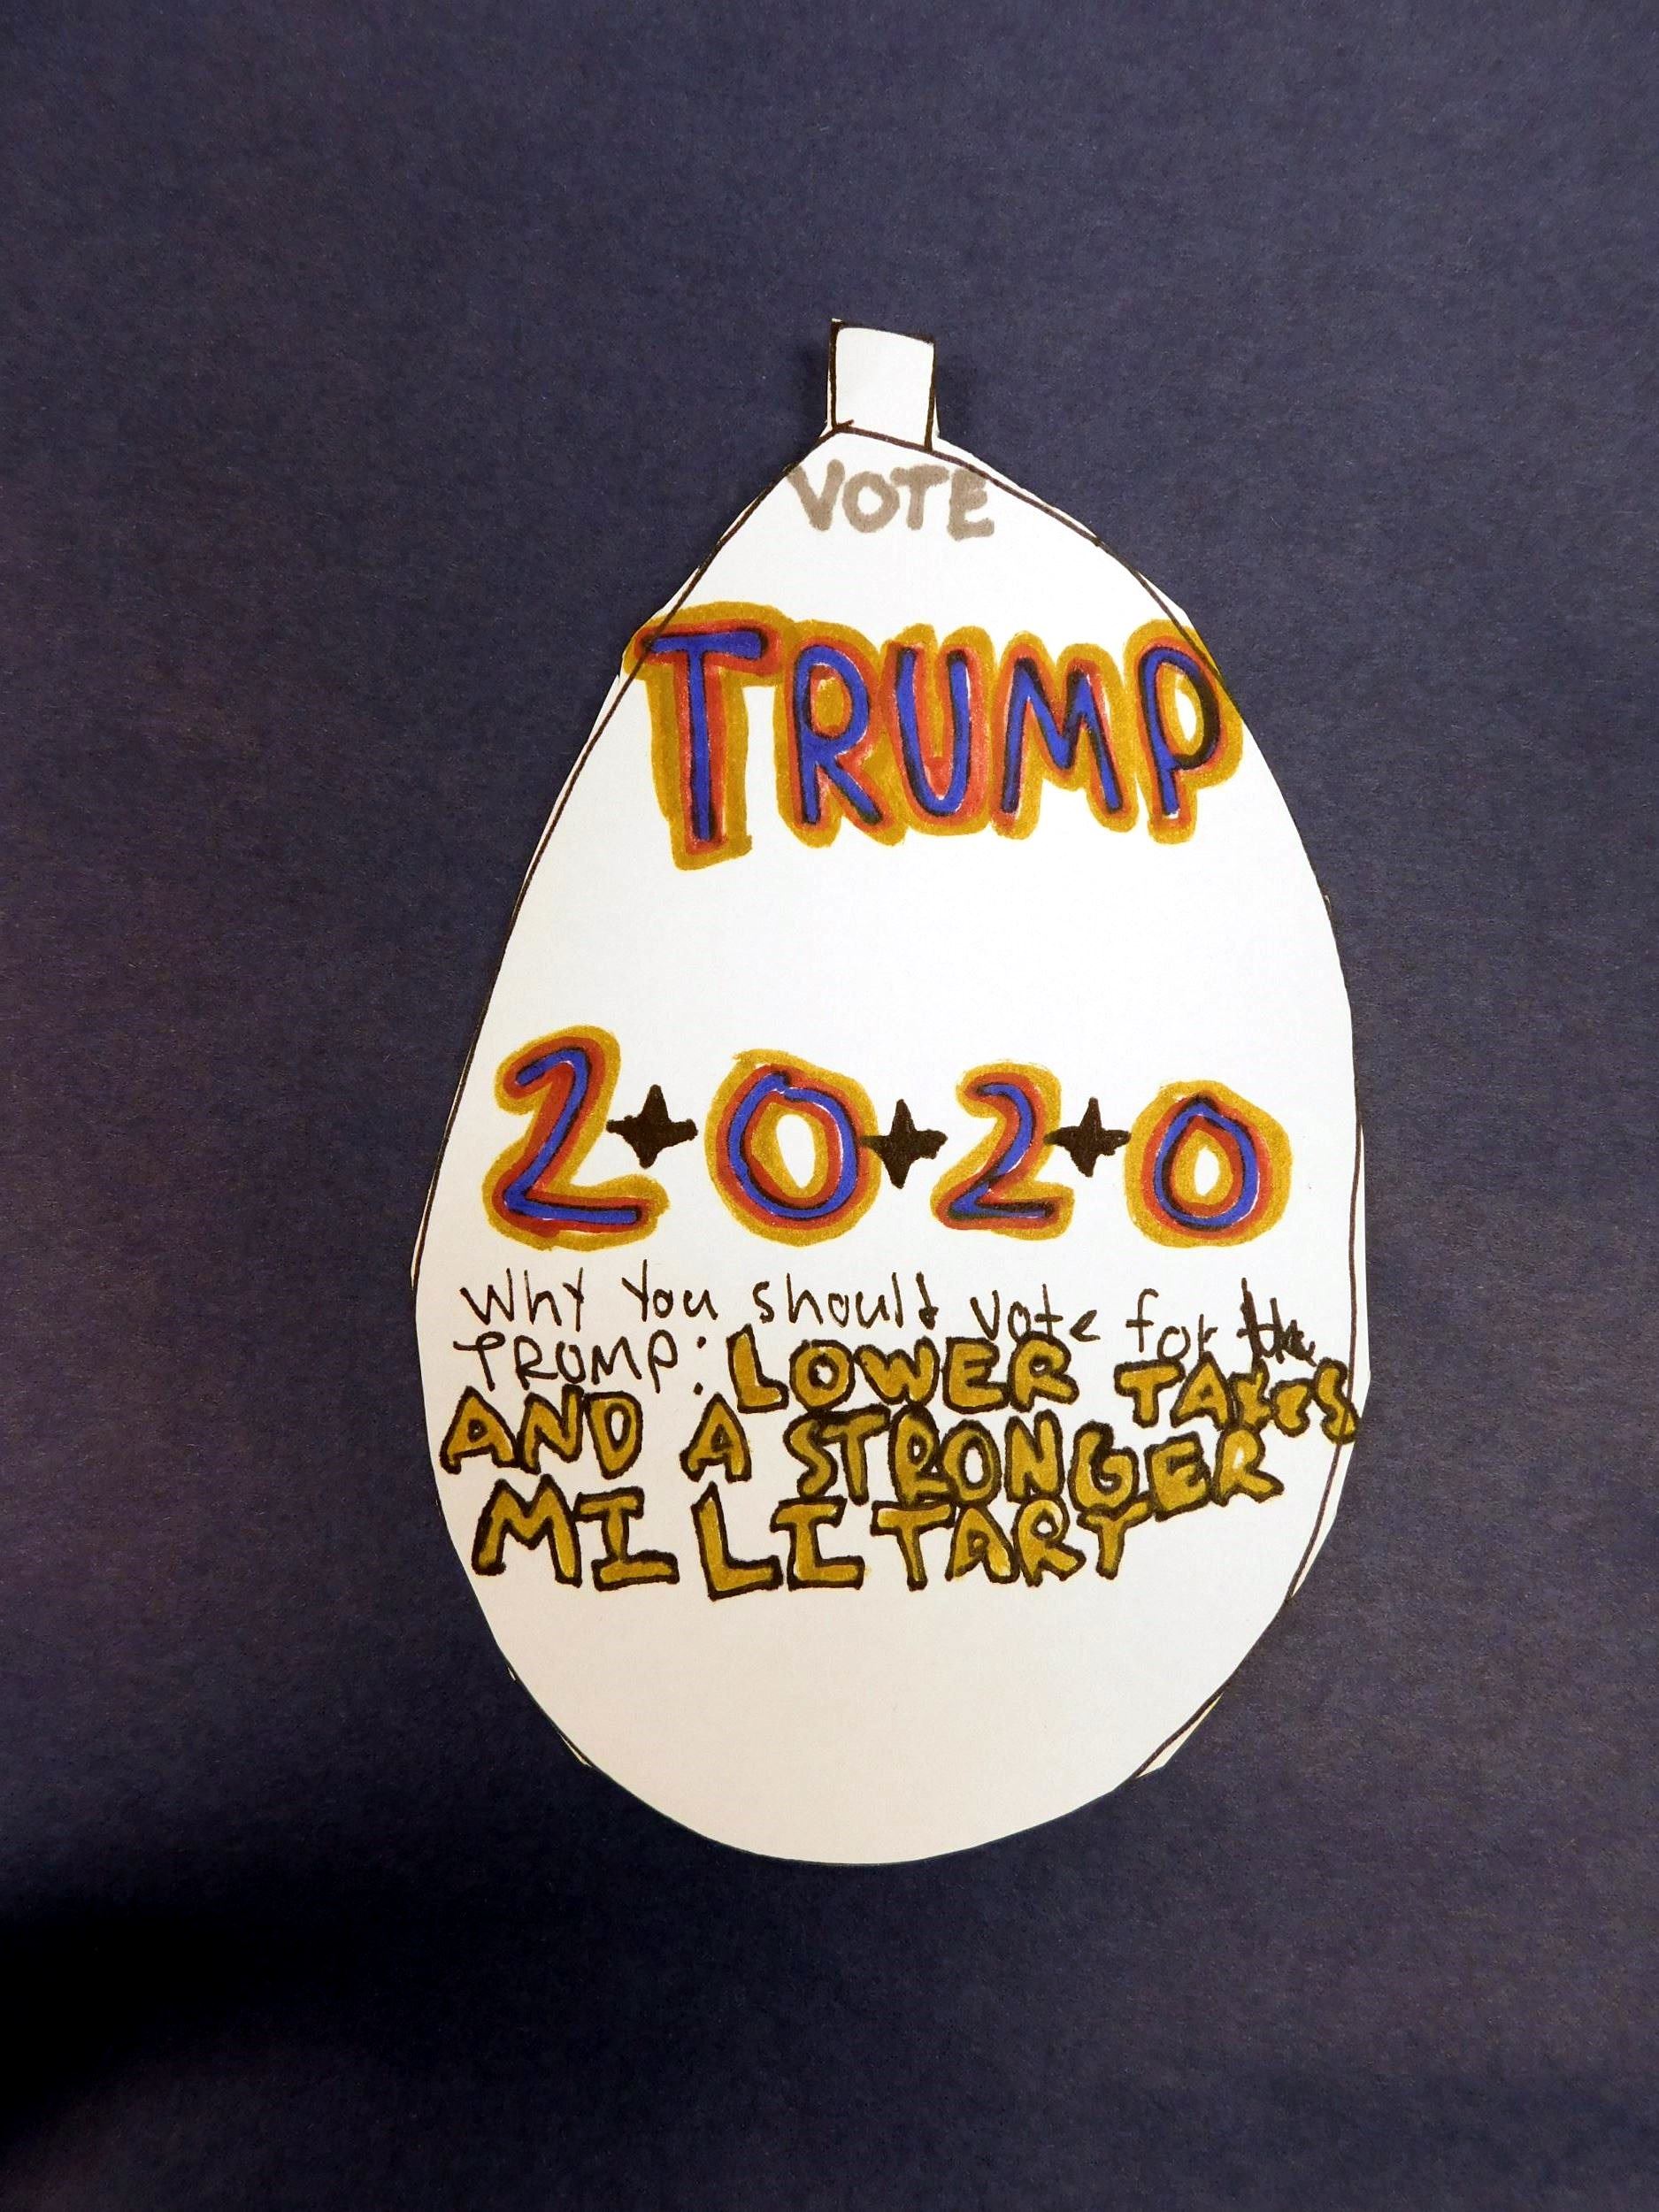 VOTE
TRUMP
2020
Why You should vote for
TRUMP: LOWER TAXES
AND A STRONGER
MILITARY